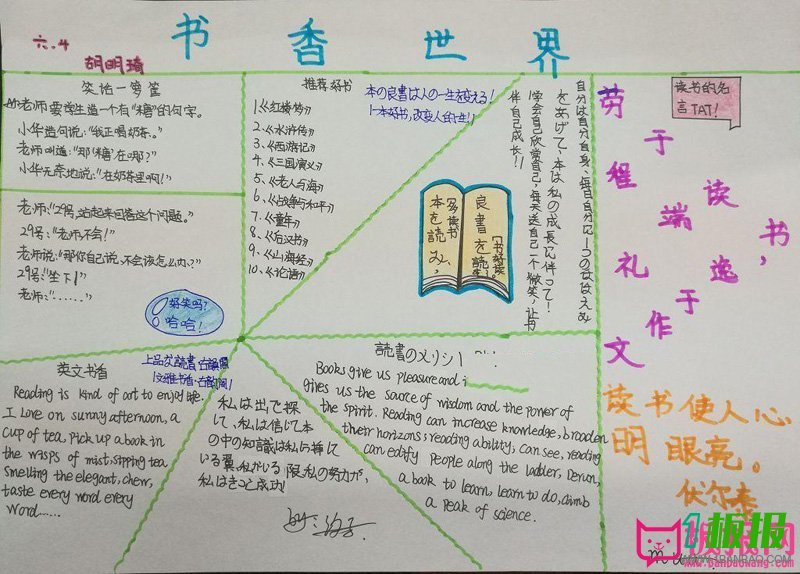 书香世界
六.4
胡明琦
笑话一箩筐
老师要学生造一个有“糖”的句字。
小华造句说:“我正喝奶茶。”
老师叫道:“那‘糖’在哪?”
小华无奈地说:“在奶茶里啊!”
老师:“29号,站起来回答这个问题。”
29号:“老师,不会!”
老师说:“那你自己说,不会该怎么办?”
29号:“坐下!”
老师:“……”
好笑吗?
哈哈!
推荐好书
1.《红楼梦》
2.《水浒传》
3.《西游记》
4.《三国演义》
5.《老人与海》
6.《战争与和平》
7.《童年》
8.《后汉书》
9.《山海经》
10.《论语》
本の良書は人の一生を变える!
1一本好书,改变人的一生!
良書を読
本を読み,
自分は自分自身、每日自分に一つのほほえみ
をあげて、本は私の成長に伴って!
学会自己欣赏自己,每天送自己一个微笑,让书
伴自己成长!!
读书的名
言TAT!
劳于读书,
逸于作文
程端礼
读书使人心
明眼亮。
伏尔泰
英文书香
Reading is kind of art to enjoy life.
I Love on sunny afternoon, a
cup of tea, pick up a book in
the wisps of mist, sipping tea
smelling the elegant, chew,
taste every word every
word……
私は出で探
して、私は信じて本
の中の知識は私に挿して
いる翼,私がいる限,私の努力が,
私はきっと成功!
読書のメリシ
Books give us pleasure and i
gives us the source of wisdom and the power of
the spirit. Reading can increase knowledge, broaden
their horizons; reading ability; can see, reading
can edify people along the ladder, Derun,
a book to learn, learn to do, climb
a peak of science.
板报网
www.banbaowang.com
1板报
WWW.1BANBAO.COM